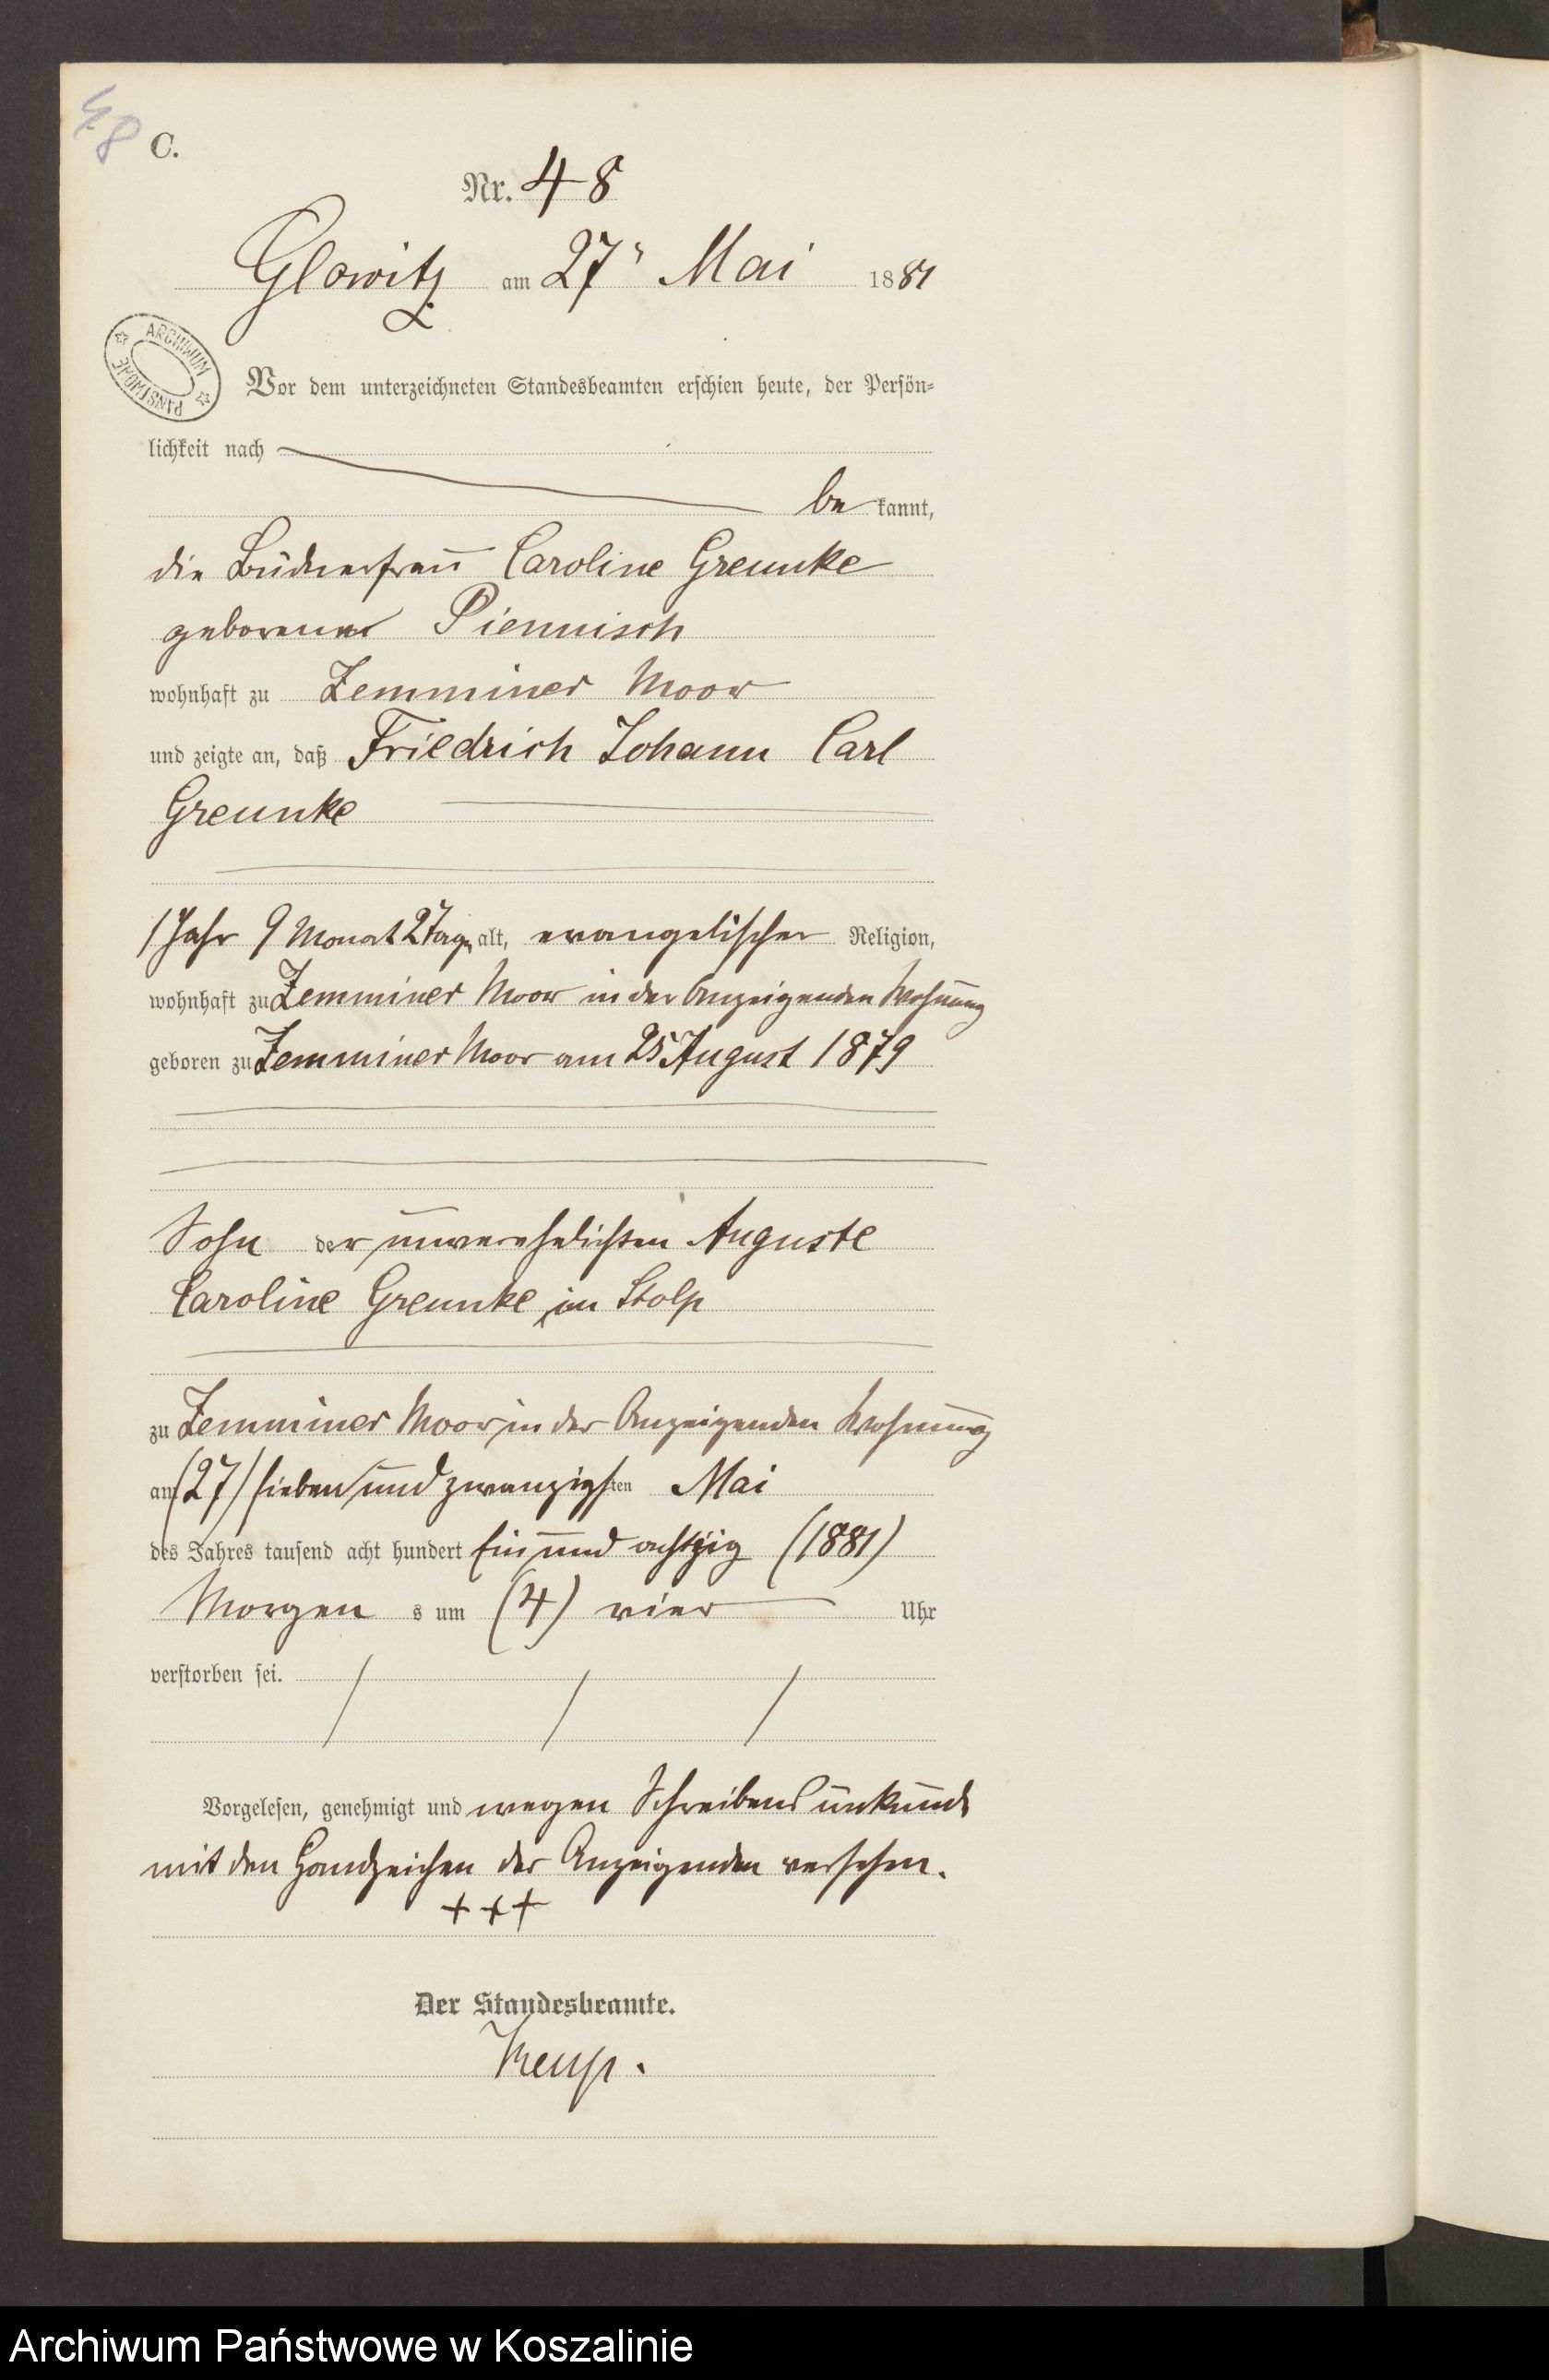 48
C.
Nr. 48
Glowitz am 27" Mai 1881
ARCHIWUM PAŃSTWOWE
Vor dem unterzeichneten Standesbeamten erschien heute, der Persön-
lichkeit nach
be kannt,
die Büdnerfrau Caroline Greunke
geborene Piennisch
wohnhaft zu Zemminer Moor
und zeigte an, daß Friedrich Johann Carl
Greunke
1 Jahr 9 Monat 2 Tage alt, evangelischer Religion,
wohnhaft zu Zemminer Moor in der Anzeigenden Wohnung
geboren zu Zemminer Moor am 25 August 1879
Sohn der unverehelichten Auguste
Caroline Greunke, in Stolp
zu Zemminer Moor in der Anzeigenden Wohnung
am (27) sieben und zwanzigsten Mai
des Jahres tausend acht hundert Ein und achtzig (1881)
Morgen s um (4) vier Uhr
verstorben sei.
Vorgelesen, genehmigt und wegen Schreibens unkunde
mit den Handzeichen der Anzeigenden versehen.
+++
Der Standesbeamte.
Archiwum Państwowe w Koszalinie